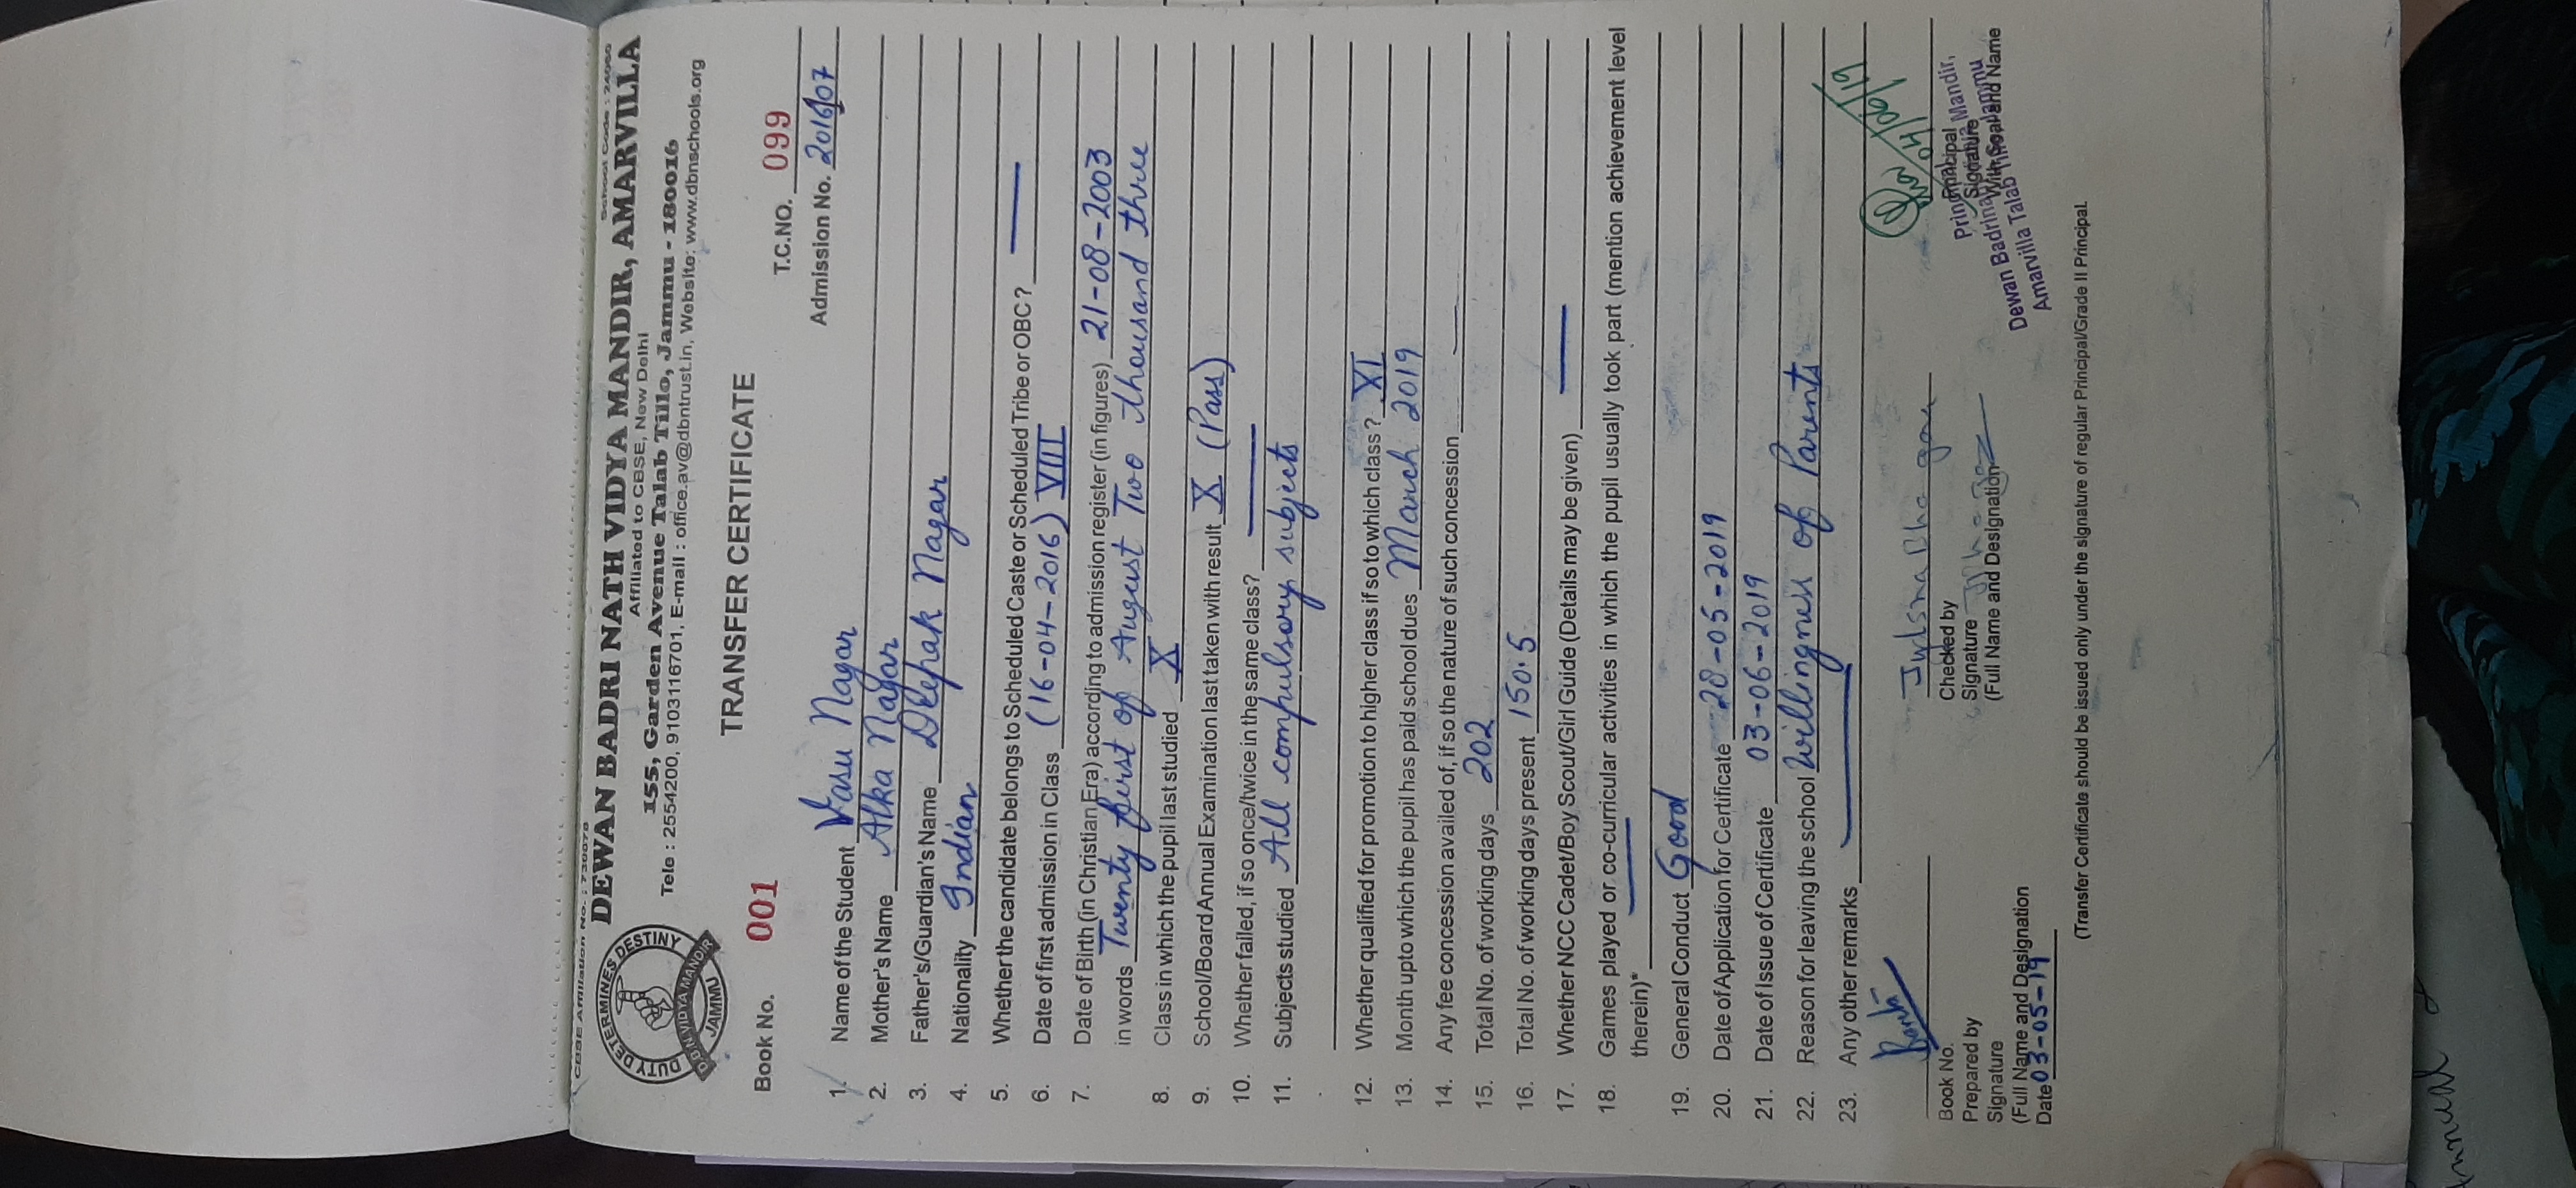 CBSE Affiliation No. : 730078 School Code : 24060
DEWAN BADRI NATH VIDYA MANDIR, AMARVILLA
Affiliated to CBSE, New Delhi
155, Garden Avenue Talab Tillo, Jammu - 180016
Tele : 2554200, 9103116701, E-mail : office.av@dbntrust.in, Website: www.dbnschools.org
DUTY DETERMINES DESTINY
D.B.N. VIDYA MANDIR
JAMMU
TRANSFER CERTIFICATE
Book No. 001 T.C.NO. 099
Admission No. 2016/07
1. Name of the Student Vasu Nagar
2. Mother's Name Alka Nagar
3. Father's/Guardian's Name Deepak Nagar
4. Nationality Indian
5. Whether the candidate belongs to Scheduled Caste or Scheduled Tribe or OBC? —
6. Date of first admission in Class (16-04-2016) VIII
7. Date of Birth (in Christian Era) according to admission register (in figures) 21-08-2003
in words Twenty first of August Two thousand three
8. Class in which the pupil last studied X
9. School/Board Annual Examination last taken with result X (Pass)
10. Whether failed, if so once/twice in the same class? —
11. Subjects studied All compulsory subjects
12. Whether qualified for promotion to higher class if so to which class? XI
13. Month upto which the pupil has paid school dues March 2019
14. Any fee concession availed of, if so the nature of such concession —
15. Total No. of working days 202
16. Total No. of working days present 150.5
17. Whether NCC Cadet/Boy Scout/Girl Guide (Details may be given) —
18. Games played or co-curricular activities in which the pupil usually took part (mention achievement level
therein)* —
19. General Conduct Good
20. Date of Application for Certificate 28-05-2019
21. Date of Issue of Certificate 03-06-2019
22. Reason for leaving the school Willingness of Parents
23. Any other remarks —
Book No.
Prepared by
Signature
(Full Name and Designation
Date 03-05-19
Checked by
Signature
(Full Name and Designation
Principal
Signature
With Seal and Name
Principal
Dewan Badrinath Vidya Mandir,
Amarvilla Talab Tillo, Jammu
(Transfer Certificate should be issued only under the signature of regular Principal/Grade II Principal.